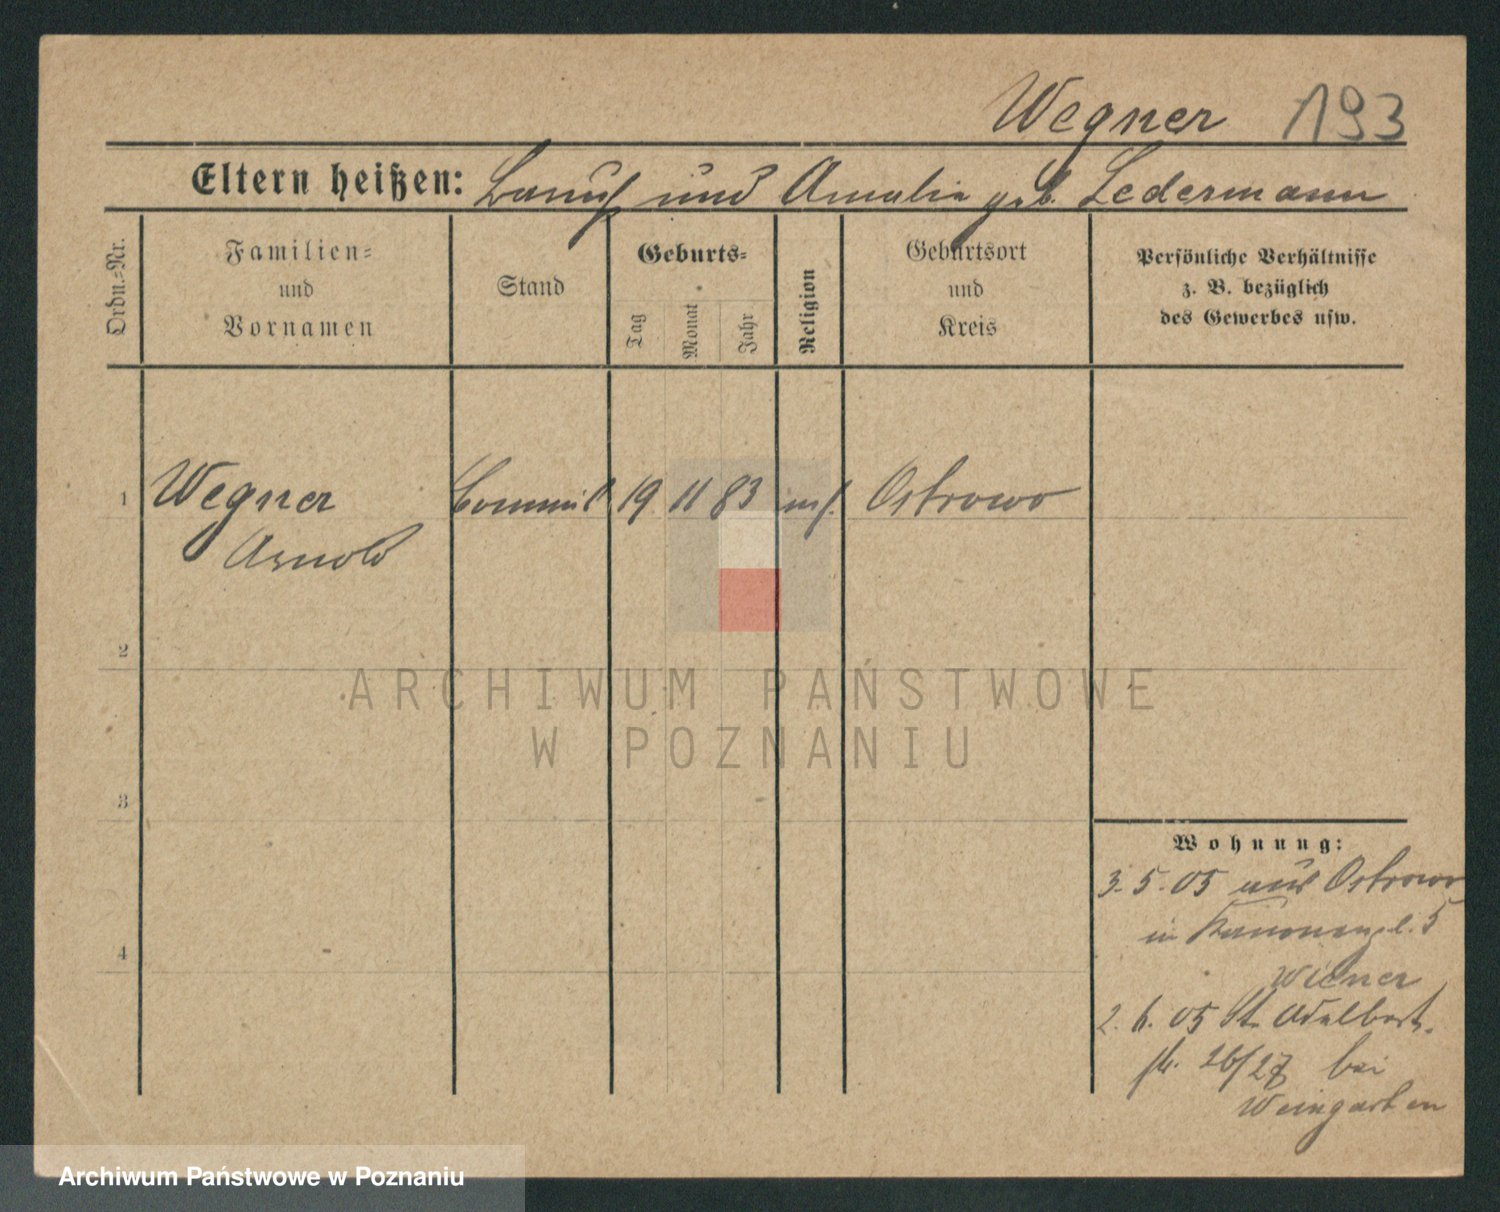 Wegner 193
Eltern heißen: Baruch und Amalie geb. Ledermann
Ordn.=Nr.
Familien=
und
Vornamen
Stand
Geburts=
Tag
Monat
Jahr
Religion
Geburtsort
und
Kreis
Persönliche Verhältnisse
z. B. bezüglich
des Gewerbes usw.
1 Wegner Commis 19 11 83 mos. Ostrowo
Arnold
2
3
4
ARCHIWUM PAŃSTWOWE
W POZNANIU
Wohnung:
3.5.05 aus Ostrowo
in Kanonenpl. 5
Wiener
2.6.05 St. Adalbert
str. 26/27 bei
Weingarten
Archiwum Państwowe w Poznaniu